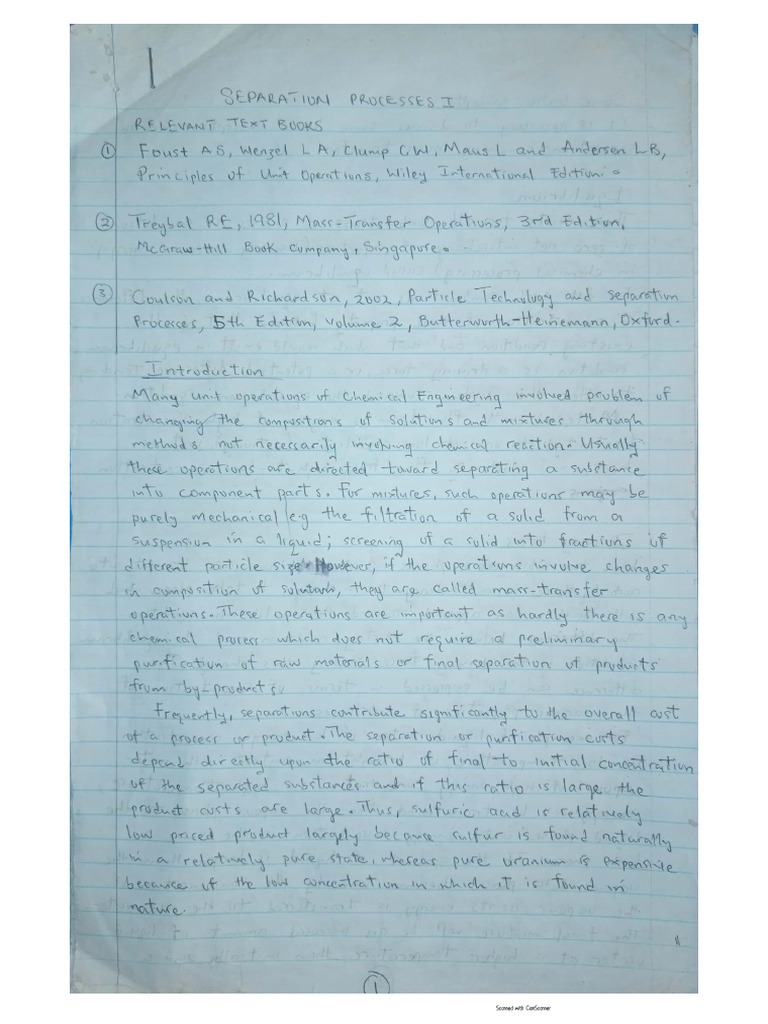 SEPARATION PROCESSES I
RELEVANT TEXT BOOKS
① Foust AS, Wenzel LA, Clump CW, Maus L and Andersen LB,
Principles of Unit Operations, Wiley International Edition.
② Treybal RE, 1981, Mass-Transfer Operations, 3rd Edition,
McGraw-Hill Book Company, Singapore.
③ Coulson and Richardson, 2002, Particle Technology and separation
Processes, 5th Edition, volume 2, Butterworth-Heinemann, Oxford.
Introduction
Many unit operations of Chemical Engineering involved problem of
changing the compositions of solutions and mixtures through
methods not necessarily involving chemical reaction. Usually
these operations are directed toward separating a substance
into component parts. For mixtures, such operations may be
purely mechanical e.g the filtration of a solid from a
suspension in a liquid; screening of a solid into fractions of
different particle size. However, if the operations involve changes
in composition of solutions, they are called mass-transfer
operations. These operations are important as hardly there is any
chemical process which does not require a preliminary
purification of raw materials or final separation of products
from by-products.
Frequently, separations contribute significantly to the overall cost
of a process or product. The separation or purification costs
depend directly upon the ratio of final to initial concentration
of the separated substances and if this ratio is large the
product costs are large. Thus, sulfuric acid is relatively
low priced product largely because sulfur is found naturally
in a relatively pure state, whereas pure uranium is expensive
because of the low concentration in which it is found in
nature.
1
Scanned with CamScanner